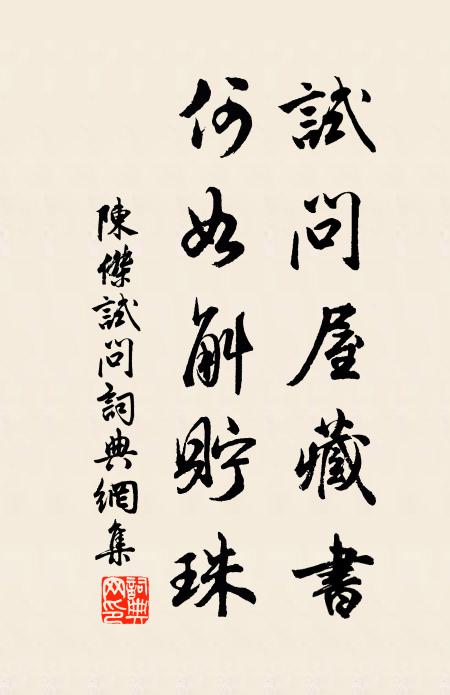 試問屋藏書
何如斛貯珠
陳傑試問詞典網集
詞典網印